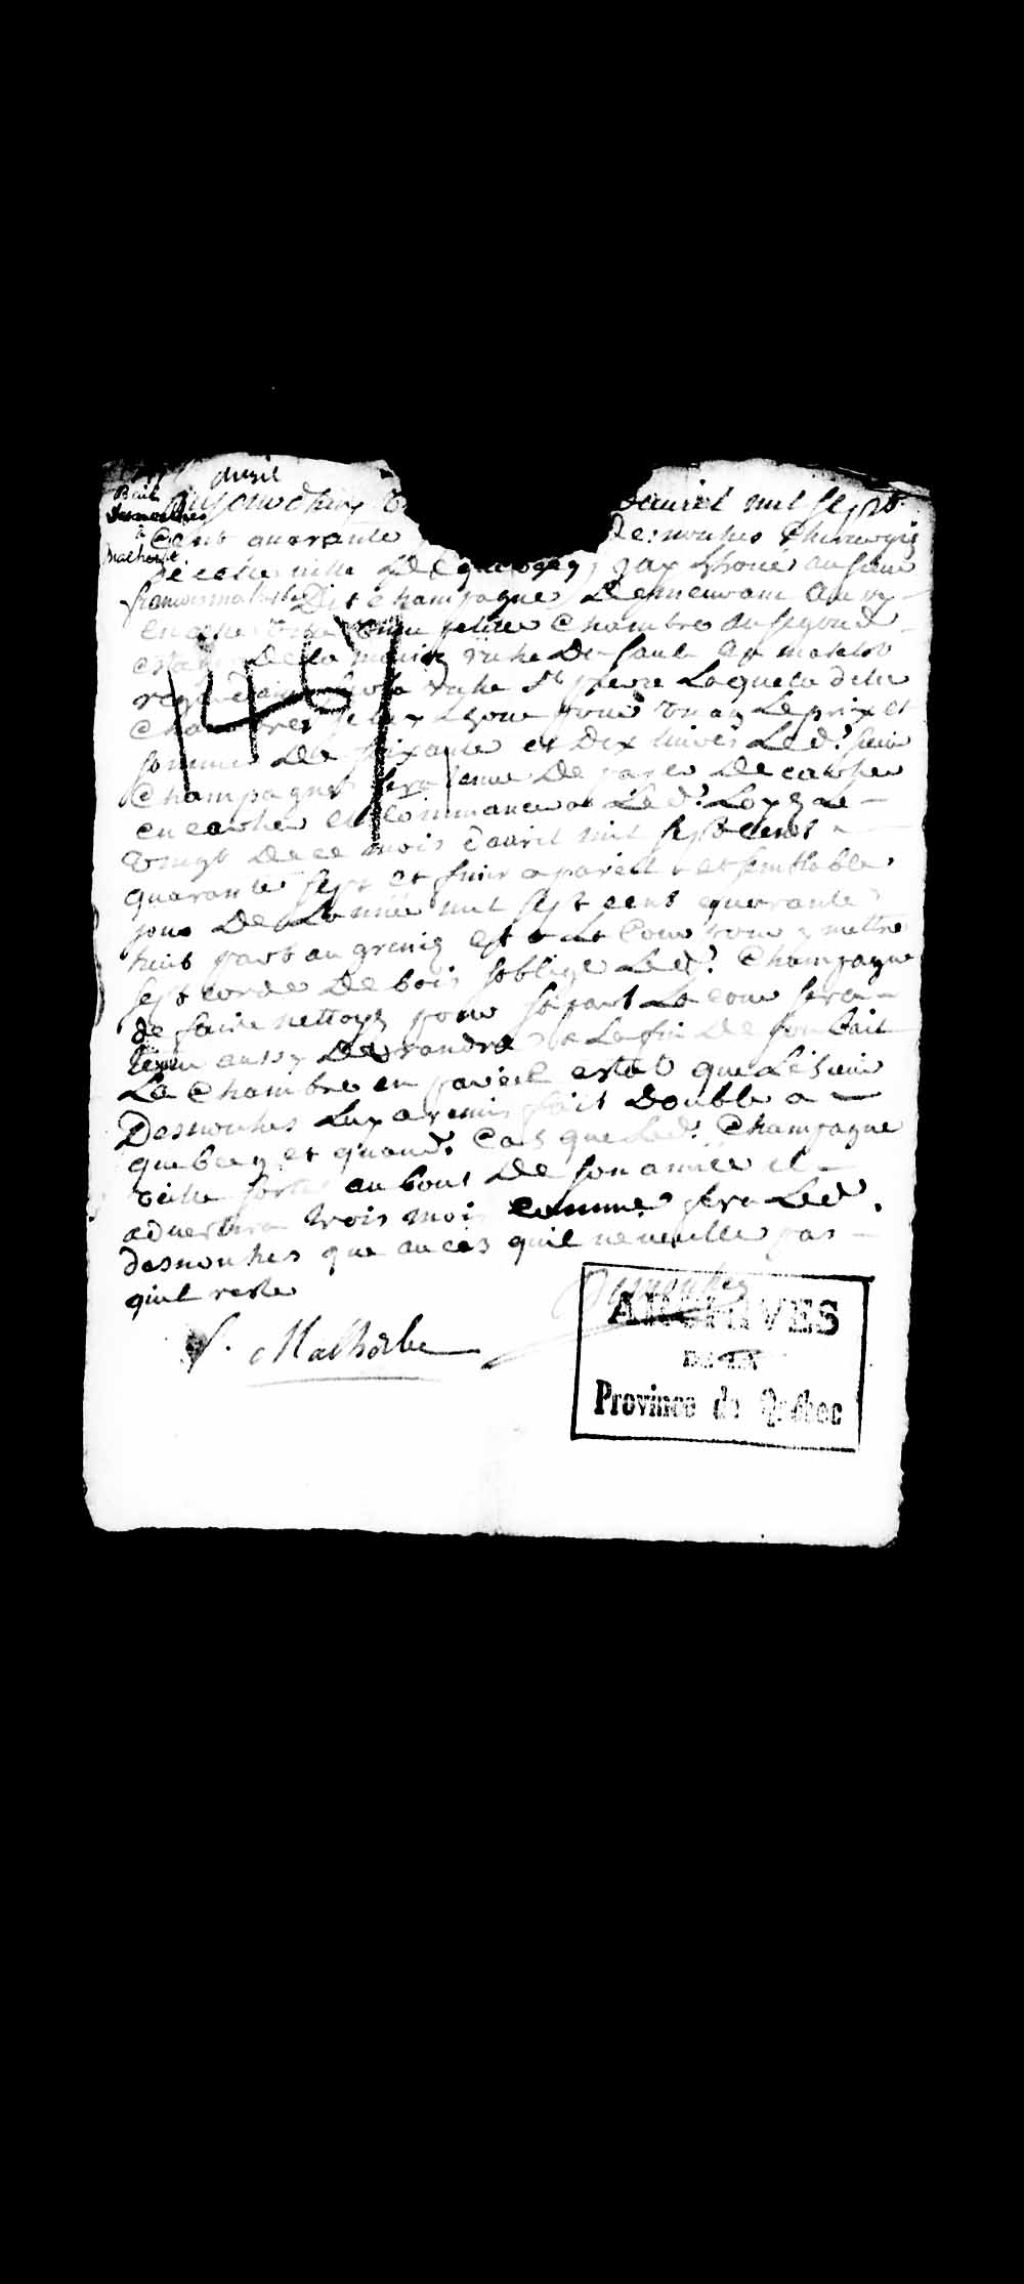 avril
Bail
Desnouhes
a
Malherbe
Aujourdhuy davriel mil sept
Cent quarante Desnouhes Chirurgis
De cette ville De quebecq, jay Lhoué au sieur
francois malherbe Dit Champagne Demeurant aussy
en cette ville Une petite Chambre du segond
De la maison ruhe De Sault au matelot
la ruhe St pierre Laquele dite
Chambre je luy Lhoue pour un an Le prix et
somme De soixante et Dix livres Led.t sieur
Champagne sera tenue De payer De carther
en carther et Commancera Led.t Loyé Le
Vingt De ce mois d'avril mil sept cents
quarante sept et finir a pareill et semblable
jour De Lannée mil sept cens quarante
huit part au grenié et a La Cour pour y mettre
sept corde De bois soblige Led.t Champagne
de faire nettoyé pour sa part La cour sera
tenu aussy De randre a La fin De son bail
La Chambre en pareil estat que Le sieur
Desnouhes Luy a remis fait Double a
quebecq et quand. Cas que Led.t Champagne
veille sortir au bout De son année il
advertira trois mois comme fera Led.
desnouhes que au cas quil ne veuille pas
quil reste
Desnouhes
f. Malherbe
ARCHIVES
DE LA
Province de Québec
146